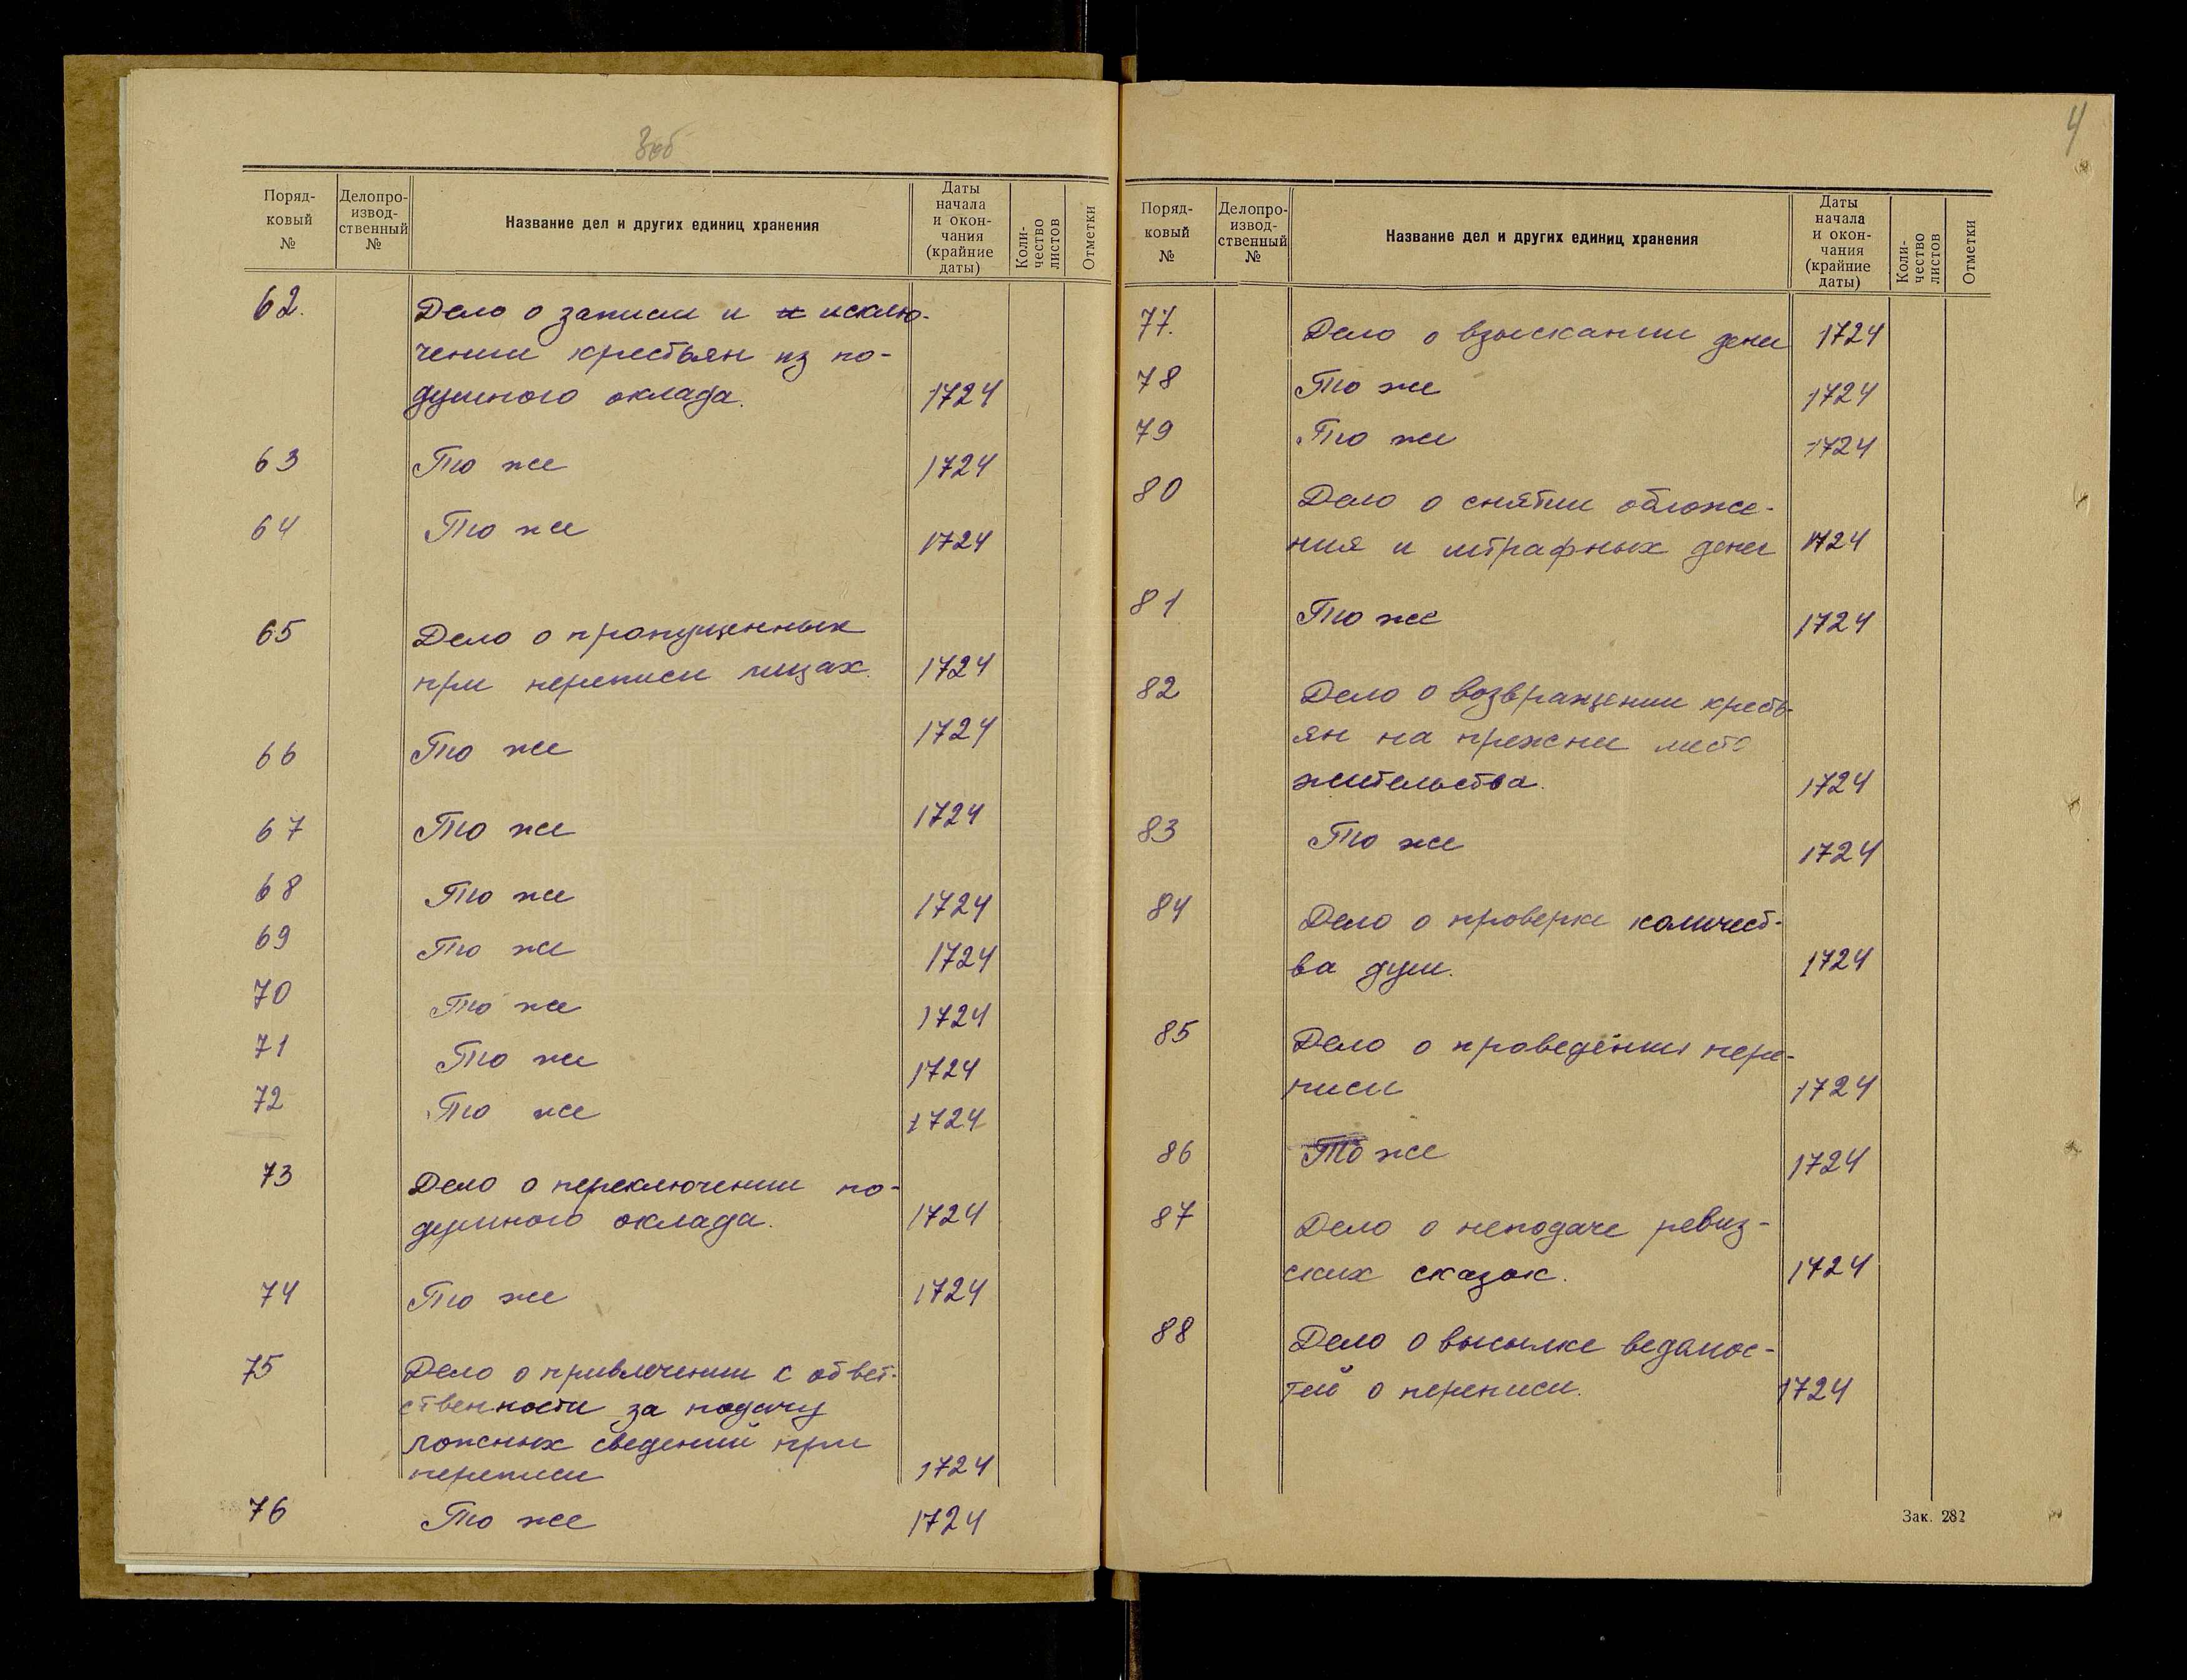 3об
Поряд-
ковый
№
Делопро-
извод-
ственный
№
Название дел и других единиц хранения
Даты
начала
и окон-
чания
(крайние
даты)
Коли-
чество
листов
Отметки
62. Дело о записи и и исклю-
чении крестьян из по-
душного оклада. 1724
63 То же 1724
64 То же 1724
65 Дело о пропущенных
при переписи лицах. 1724
66 То же 1724
67 То же 1724
68 То же 1724
69 То же 1724
70 То же 1724
71 То же 1724
72 То же 1724
73 Дело о переключении по-
душного оклада. 1724
74 То же 1724
75 Дело о привлечении к ответ-
ственности за подачу
ложных сведений при
переписи 1724
76 То же 1724
4
Поряд-
ковый
№
Делопро-
извод-
ственный
№
Название дел и других единиц хранения
Даты
начала
и окон-
чания
(крайние
даты)
Коли-
чество
листов
Отметки
77. Дело о взыскании денег 1724
78 То же 1724
79 То же 1724
80 Дело о снятии обложе-
ния и штрафных денег 1724
81 То же 1724
82 Дело о возвращении кресть-
ян на прежнее место
жительства. 1724
83 То же 1724
84 Дело о проверке количест-
ва душ. 1724
85 Дело о проведении пере-
писи 1724
86 То же 1724
87 Дело о неподаче ревиз-
ских сказок. 1724
88 Дело о высылке ведомос-
тей о переписи. 1724
Зак. 282